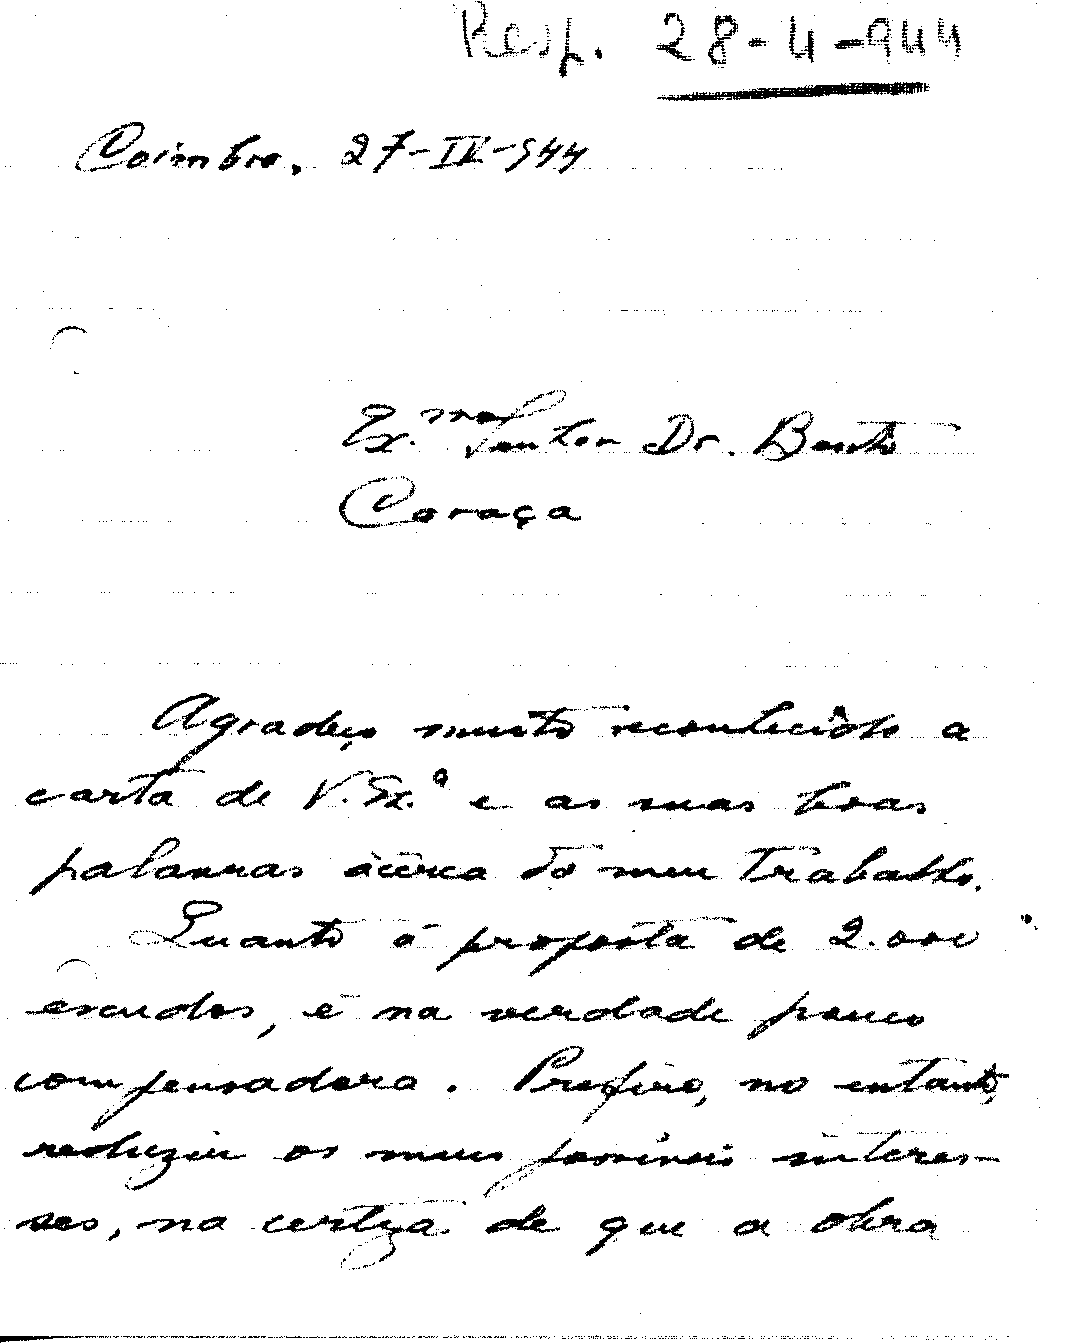 Resp. 28-4-944
Coimbra, 27-IV-944
Ex.mo Senhor Dr. Bento
Caraça
Agradeço muito reconhecido a
carta de V. Ex.a e as suas boas
palavras àcêrca do meu trabalho.
Quanto à proposta de 2.000
escudos, é na verdade pouco
compensadora. Prefiro, no entanto,
reduzir os meus possíveis interes-
ses, na certeza de que a obra